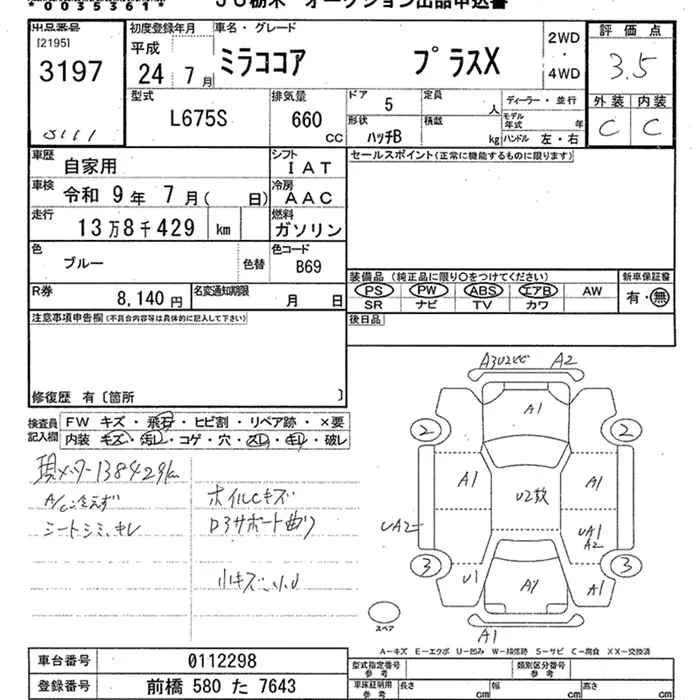 JU栃木 オークション出品申込書
出品番号 初度登録年月 車名・グレード 評価点
[2195] 平成 2WD
3197 24 7月 ミラココア プラスX ・ 3.5
4WD
型式 排気量 ドア 5 定員 人 ディーラー・並行 外装 内装
L675S 660 CC 形状 積載 モデル年式 年 C C
ハッチB kg ハンドル 左・右
車歴 自家用 シフト IAT セールスポイント(正常に機能するものに限ります)
車検 令和 9年 7月( 日) 冷房 AAC
走行 13万8千429 km 燃料 ガソリン
色 ブルー 色替 色コード B69
装備品 (純正品に限り〇をつけてください) 新車保証書
R券 8,140円 名変通知期限 月 日 PS PW ABS エアB AW 有・無
SR ナビ TV カワ
注意事項申告欄(不具合内容等は具体的に記入して下さい) 後日品
修復歴 有〔箇所 〕
A3U2 A2
検査員記入欄 FW キズ・飛石・ヒビ割・リペア跡・×要
内装 キズ・汚レ・コゲ・穴・スレ・キレ・破レ
A1
2 2
現メーター138429km
A/C冷えず ホイルCキズ A1 U2数 A1
シートシミ、キレ ロアサポート曲り UA2 UA1
A2
3 3
小キズ U1 AY A1
スペア
A1
A-キズ E-エクボ U-凹み W-補修跡 S-サビ C-腐食 XX-交換済
車台番号 0112298 型式指定番号 参考 類別区分番号 参考
登録番号 前橋 580 た 7643 車庫証明用 参考 長さ cm 幅 cm 高さ cm